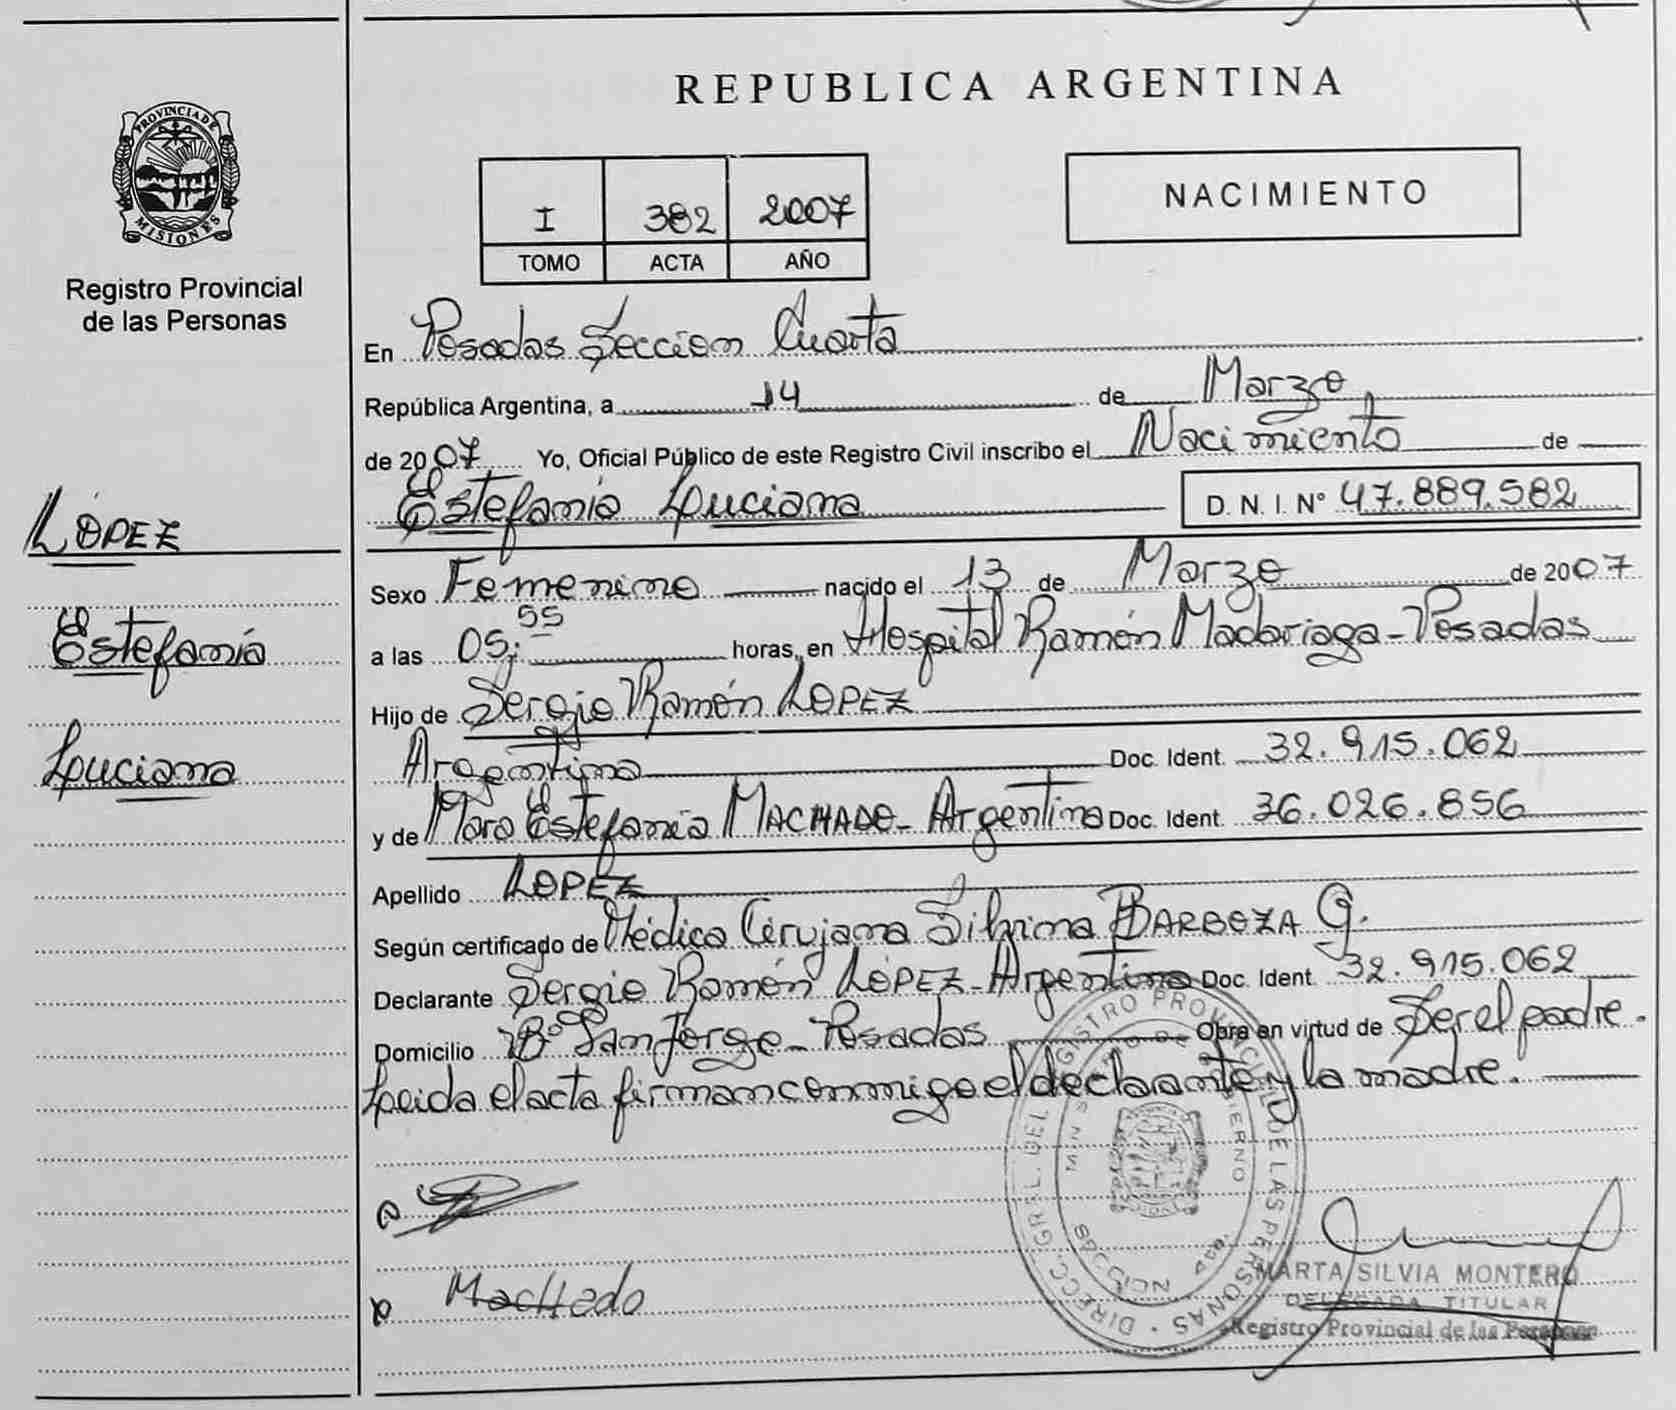 REPUBLICA ARGENTINA
PROVINCIA DE
MISIONES
Registro Provincial
de las Personas
I 382 2007
TOMO ACTA AÑO
NACIMIENTO
En Posadas Sección Cuarta
República Argentina, a 14 de Marzo
de 2007 Yo, Oficial Público de este Registro Civil inscribo el Nacimiento de
Estefanía Luciana D. N. I. N° 47.889.582
LÓPEZ
Estefanía
Luciana
Sexo Femenino nacido el 13 de Marzo de 2007
a las 05:55 horas, en Hospital Ramón Madariaga - Posadas
Hijo de Sergio Ramón LOPEZ
Argentino Doc. Ident. 32.915.062
y de Mara Estefanía MACHADO - Argentina Doc. Ident. 36.026.856
Apellido LOPEZ
Según certificado de Médica Cirujana Silvina BARBOZA G.
Declarante Sergio Ramón LÓPEZ - Argentino Doc. Ident. 32.915.062
Domicilio B° San Jorge - Posadas Obra en virtud de Ser el padre.
Leida el acta firman conmigo el declarante y la madre.
Machado
DIRECC. GRAL. DEL REGISTRO PROVINCIAL DE LAS PERSONAS
MARTA SILVIA MONTERO
DELEGADA TITULAR
Registro Provincial de las Personas